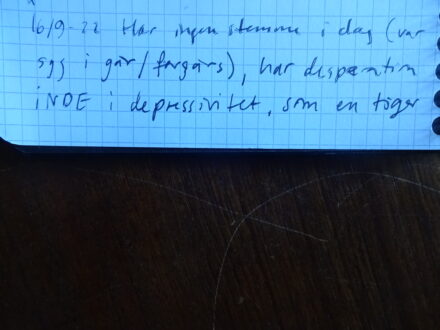 16/9-22 Har ingen stemme i dag (var
syg i går/forgårs), har desperation
iNDE i depressivitet, som en tiger